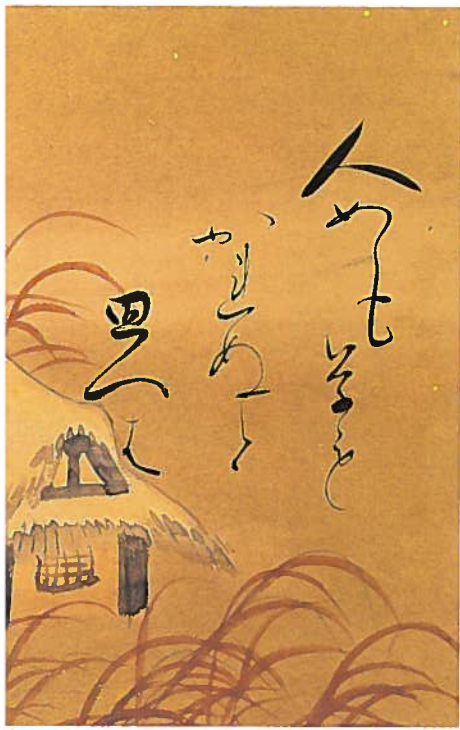 人めも草も
かれぬと
思へは